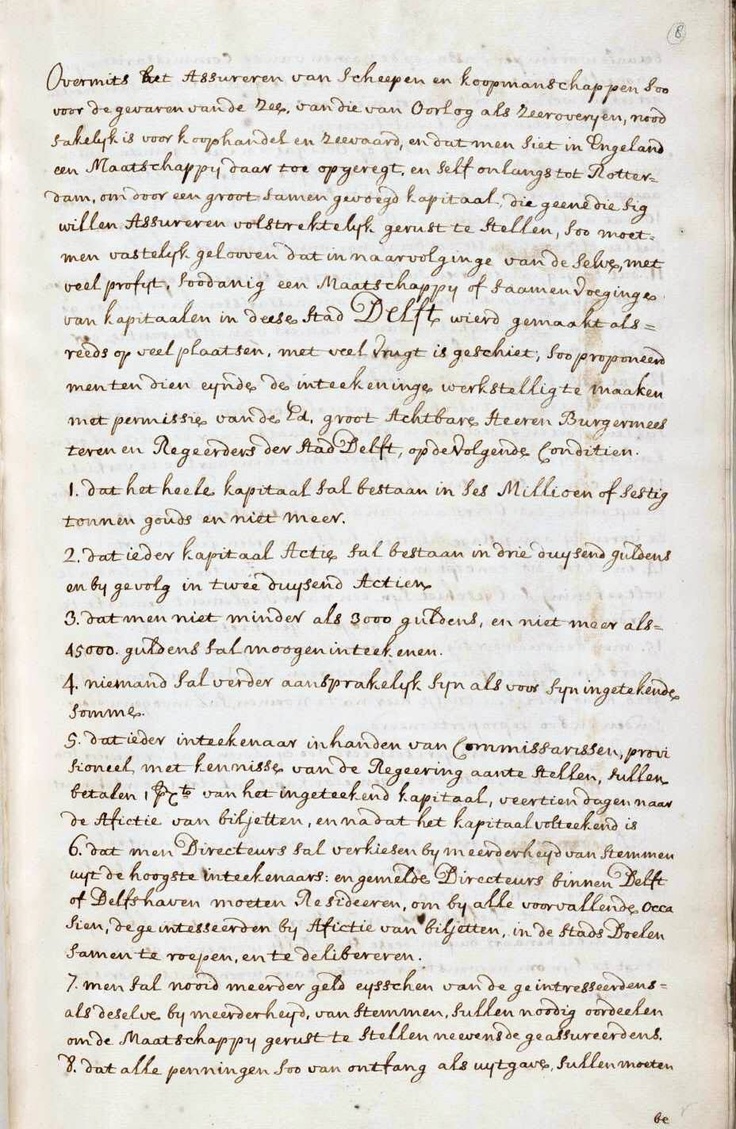 8
Overmits het Assureren van scheepen en koopmanschappen soo
voor de gevaren van de zee, van die van Oorlog als zeeroveryen, nood
sakelijk is voor koophandel en zeevaard, en dat men siet in Engeland
een Maatschappij daar toe opgeregt, en self onlangs tot Rotter=
dam, om door een groot samen gevoegd kapitaal, die geene die sig
willen Assureren volstrektelijk gerust te stellen, soo moet=
men vastelijk gelooven dat in naarvolginge van de selve, met
veel profijt, soodanig een Maatschappy of saamenvoeginge
van kapitaalen in deese stad Delft wierd gemaakt als=
reeds op veel plaatsen, met veel vrugt is geschiet, soo proponeerd
men ten dien eynde de inteekeninge werkstellig te maaken
met permissie van de Ed. groot Achtbare Heeren Burgermees
teren en Regeerders der stad Delft, op de volgende Conditien.
1. dat het heele kapitaal sal bestaan in ses Millioen of sestig
tonnen gouds en niet meer.
2. dat ieder kapitaal Actie sal bestaan in drie duysend guldens
en by gevolg in twee duysend Actien
3. dat men niet minder als 3000 guldens, en niet meer als=
45000. guldens sal moogen inteekenen.
4. niemand sal verder aansprakelijk sijn als voor sijn ingetekende
somme.
5. dat ieder inteekenaar in handen van Commissarissen, provi
sioneel met kennisse van de Regeering aan te stellen, sullen
betalen 1 van het ingeteekend kapitaal, veertien dagen naar
de Afictie van biljetten, en na dat het kapitaal volteekend is
6. dat men Directeurs sal verkiesen by meerderheyd van stemmen
uyt de hoogste inteekenaars: en gemelde Directeurs binnen Delft
of Delfshaven moeten Resideeren, om by alle voorvallende Occa
sien, de geintesseerden by Afictie van biljetten, in de stads Doelen
samen te roepen, en te delibereren.
7. men sal nooid meerder geld eysschen van de geintresseerdens=
als deselve by meerderheyd, van stemmen, sullen noodig oordeelen
om de Maatschappy gerust te stellen nevens de geassureerdens.
8. dat alle penningen soo van ontfang als uytgave, sullen moeten
be